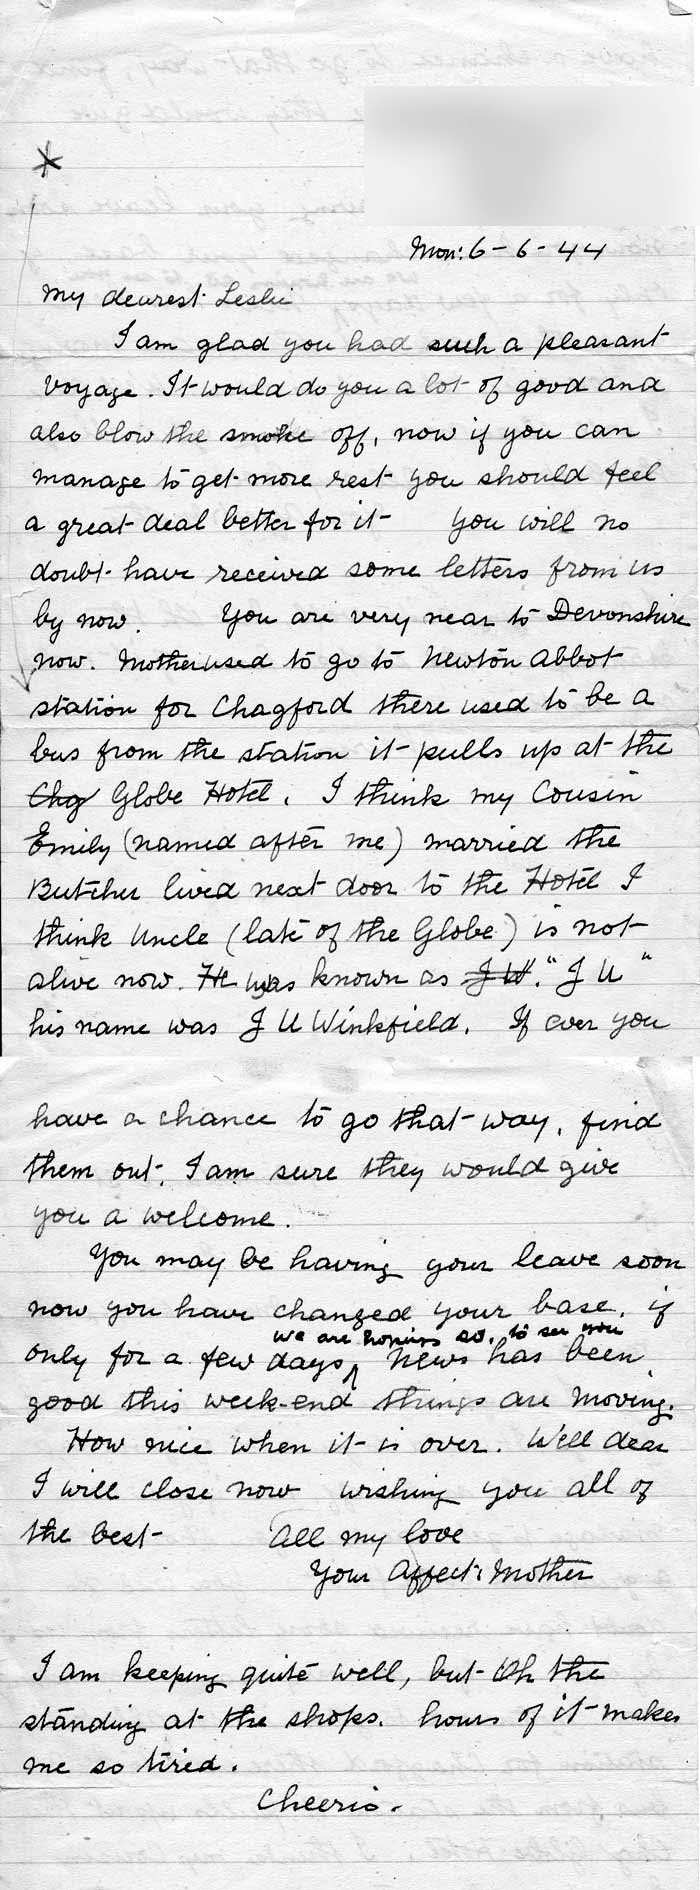 Mon: 6-6-44
My dearest Leslie
I am glad you had such a pleasant
voyage. It would do you a lot of good and
also blow the smoke off, now if you can
manage to get more rest you should feel
a great deal better for it you will no
doubt have received some letters from us
by now. You are very near to Devonshire
now. Mother used to go to Newton Abbot
station for Chagford there used to be a
bus from the station it pulls up at the
Chg Globe Hotel. I think my Cousin
Emily (named after me) married the
Butcher lived next door to the Hotel I
think Uncle (late of the Globe) is not
alive now. He was known as J W. "J U"
his name was J U Winkfield. If ever you
have a chance to go that way, find
them out. I am sure they would give
you a welcome.
You may be having your leave soon
now you have changed your base, if
we are hoping so, to see you
only for a few days, News has been
good this week-end things are moving.
How nice when it is over. Well dear
I will close now wishing you all of
the best All my love
Your Affect: Mother
I am keeping quite well, but Oh the
standing at the shops. hours of it makes
me so tired.
Cheerio.